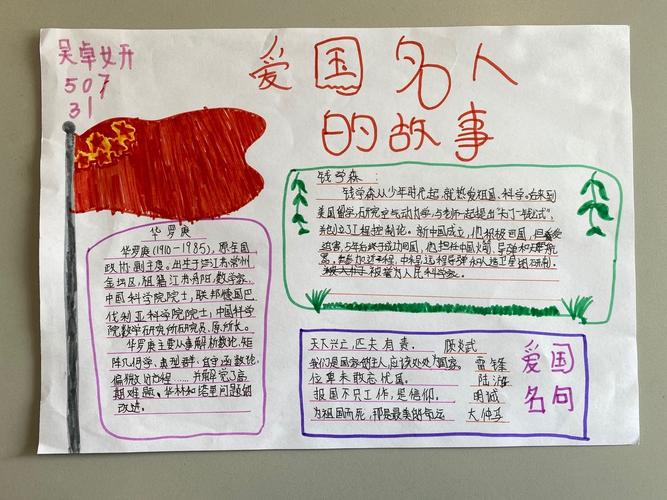 吴卓妍
507
31
爱国名人
的故事
华罗庚
华罗庚(1910-1985),原全国
政协副主席。出生于江苏常州
金坛区,祖籍江苏丹阳,数学家,
中国科学院院士,联邦德国巴
伐利亚科学院院士,中国科学
院数学研究所研究员、原所长。
华罗庚主要从事解析数论、矩
阵几何学、典型群、自守函数论、
偏微分方程……并解觉了高
斯难题、华林和塔里问题的
改进。
钱学森:
钱学森从少年时代起,就热爱祖国、科学。后来到
美国留学,研究空气动力学,与老师一起提出"卡门-钱公式",
创立了工程控制论。新中国成立,他积极回国,但
迫害,5年后终于成功回国,他担任中国火箭、导弹和
的研制。
被誉为人民科学家。
天下兴亡,匹夫有责。 顾炎武
我们是国家的主人,应该处处为国家。 雷锋
位卑未敢忘忧国。 陆游
报国不只工作,是信仰。 明诚
为祖国而死,那是最美的命运 大仲马
爱国
名句